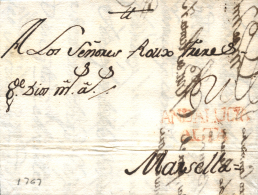 A Los Señores Roux freres
q.e Dios m.s a.s
ANDALUCIA
ALTA
Marsella
1767